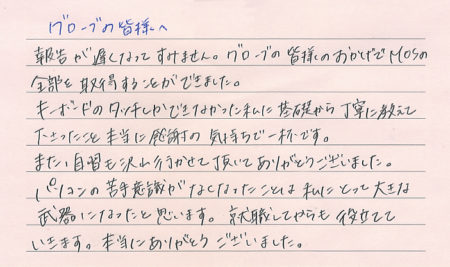 グローブの皆様へ
報告が遅くなってすみません。グローブの皆様のおかげでMOSの
全部を取得することができました。
キーボードのタッチしかできなかった私に基礎から丁寧に教えて
下さったこと本当に感謝の気持ちで一杯です。
また、自習も沢山行かせて頂いてありがとうございました。
パソコンの苦手意識がなくなったことは私にとって大きな
武器になったと思います。就職してからも役立てて
いきます。本当にありがとうございました。